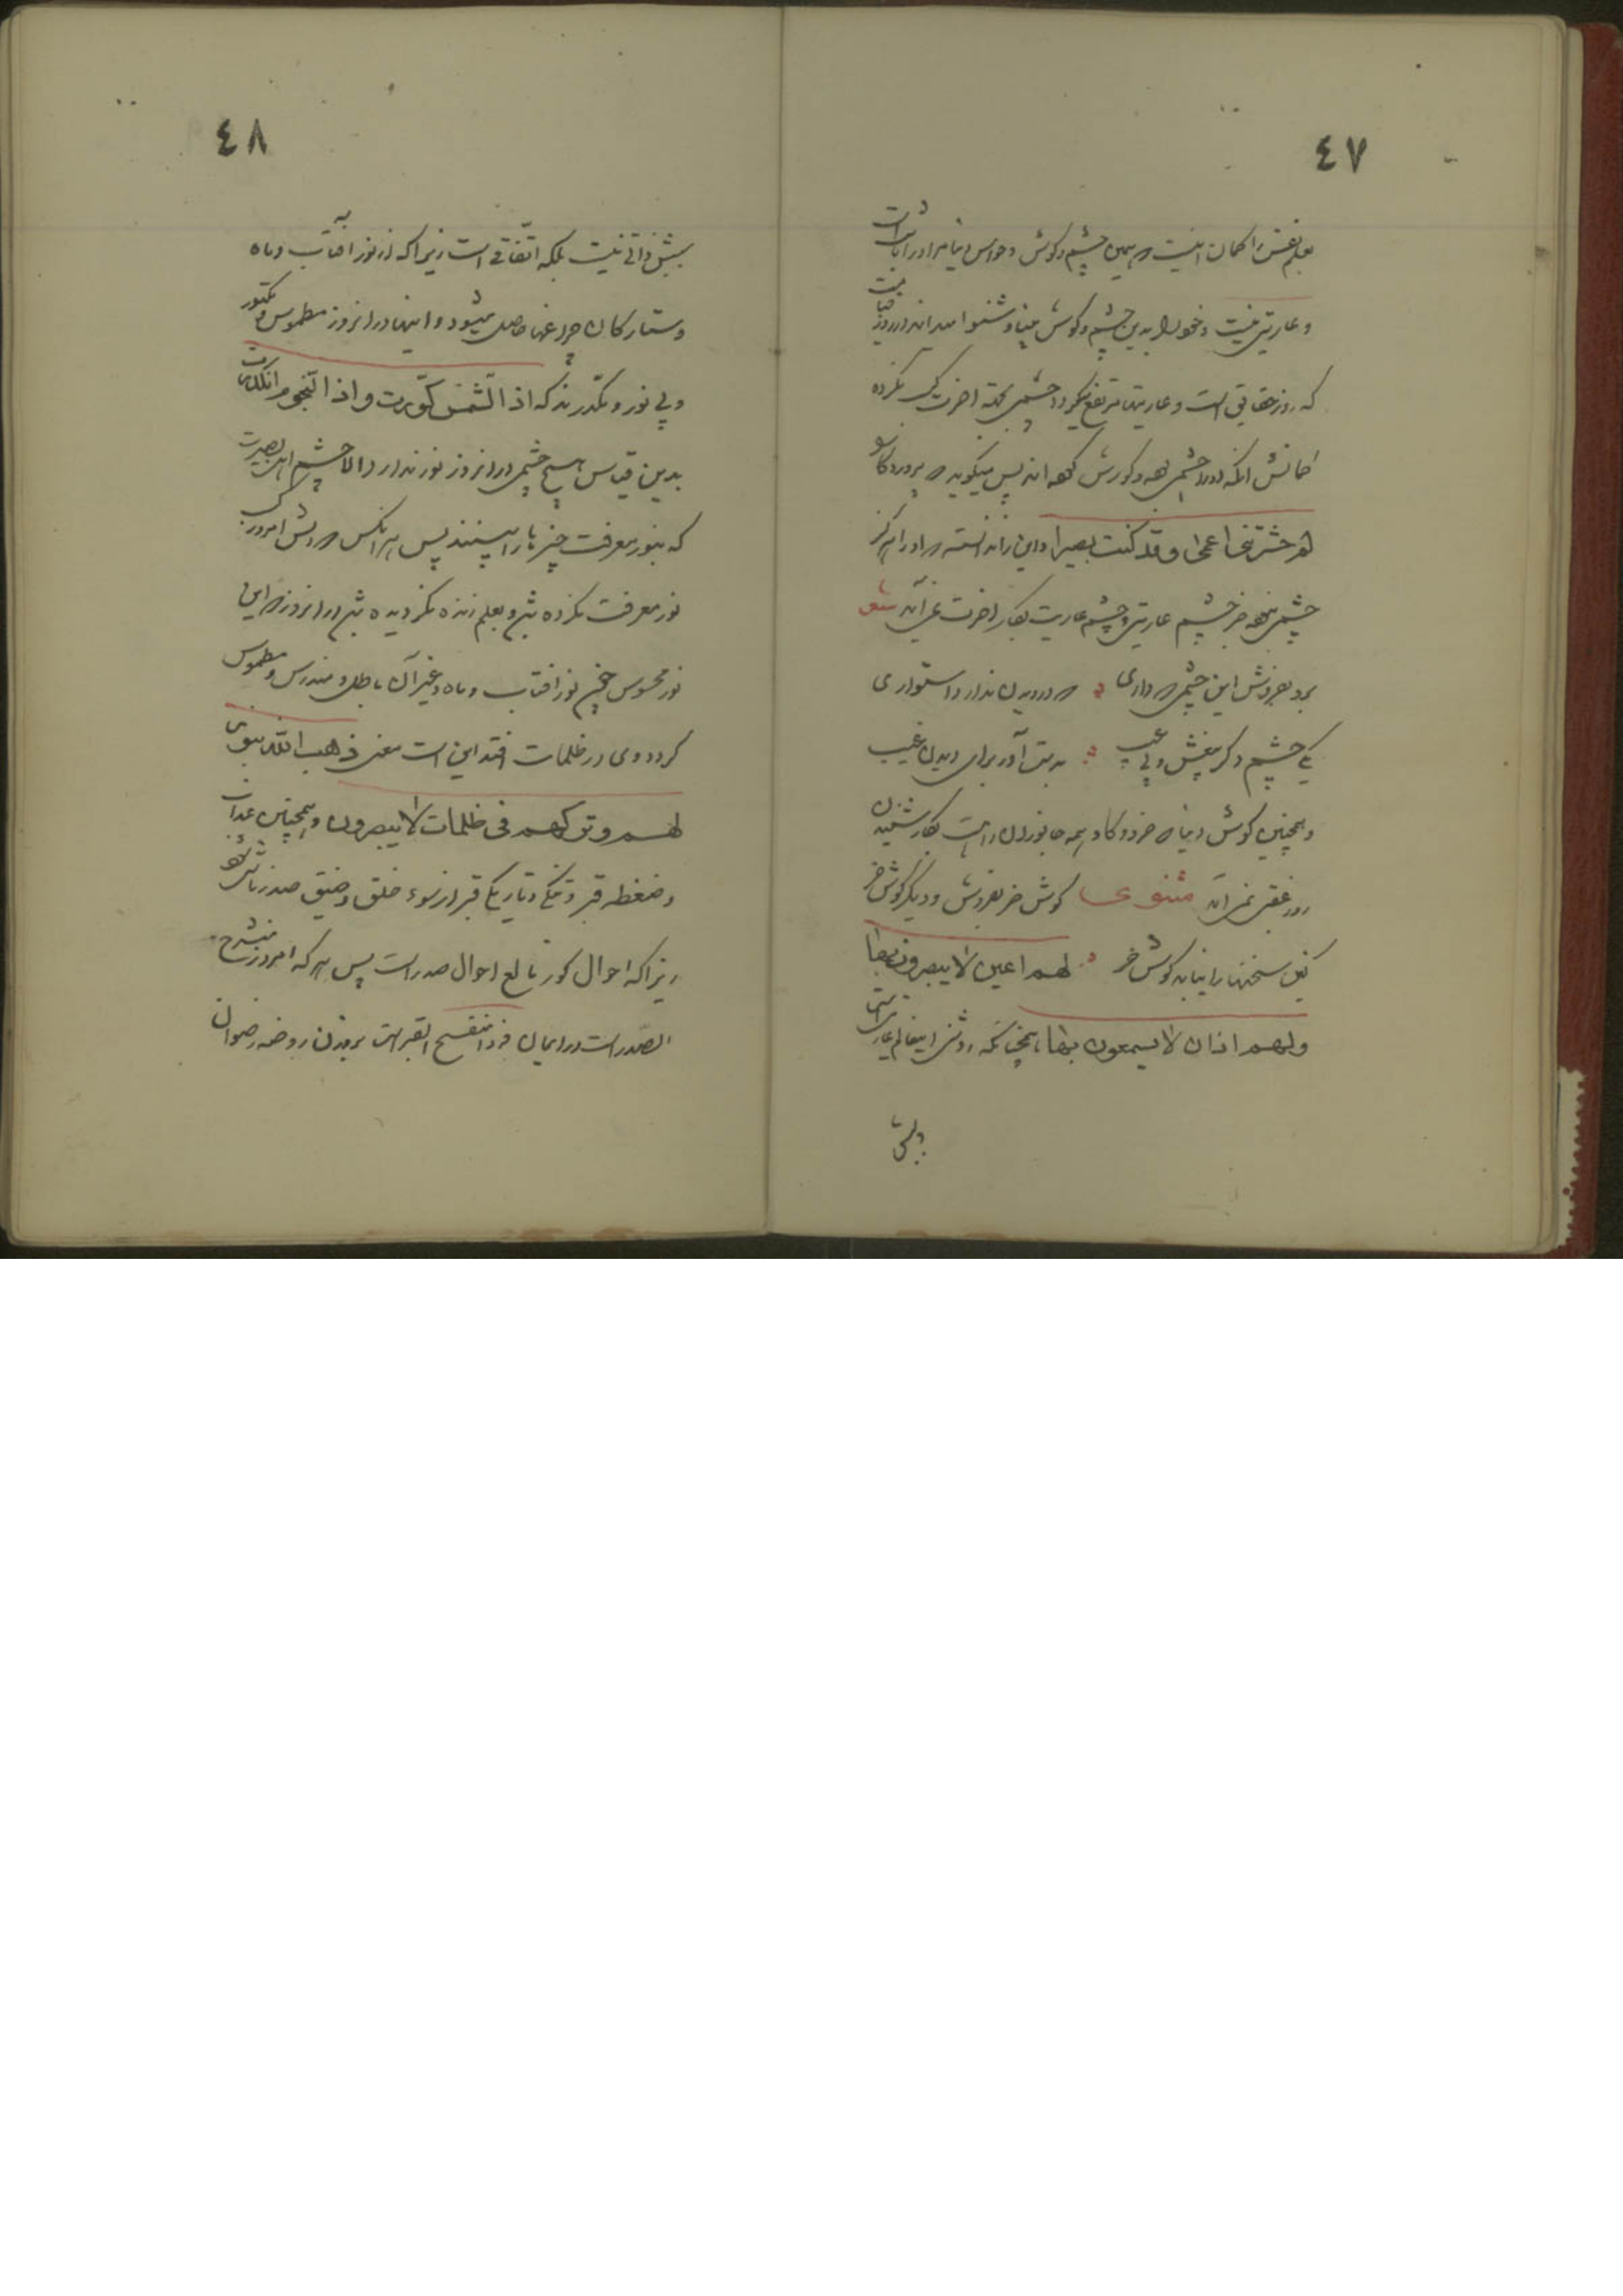 ٤٧
بعلم نفس را کمان اینست که همین چشم و کوش و حواس دنیا مر او را ثابت است
و عاریتی نیست و خود را بدین چشم و کوش بینا و شنوا میداند در روز قیامت
که روز حقایق است و عاریتها مرتفع میکردد چشمی بجهة اخرت کسب نکرده
کمانش انکه او را چشمی بود و کورش کرده اند پس میکوید که پروردکارا
لم حشرتنی اعمی و قد کنت بصیرا و این را ندانسته که او را هرکز
چشمی نبود جز چشم عاریتی و چشم عاریت بکار اخرت نمی آید
برو بفروش این چشمی که داری که در دیدن ندارد استواری
یکی چشم دکر بیغش و بی عیب بدست آور برای دیدن غیب
و همچنین کوش دنیا که خر و کاو و همه جانوران راست بکار شنیدن
روز عقبی نمی آید مثنوی کوش خر بفروش و دیکر کوش خر
کین سخنها را نیابد کوش خر لهم اعین لا یبصرون بها
ولهم اذان لا یسمعون بها همچنانکه روشنی اینعالم عاریتی است
٤٨
پیش ذاتی نیست بلکه اتفاقی است زیرا که از نور آفتاب و ماه
و ستارکان و چراغها حاصل میشود و اینها در انروز مطموس و مکور
و بی نور و مکدرند که اذا الشمس کورت و اذا النجوم انکدرت
بدین قیاس هیچ چشمی در انروز نور ندارد الا چشم اهل بصیرت
که بنور معرفت چیزها را ببینند پس هر انکس که امروز کسب
نور معرفت نکرده و بعلم زنده نکردیده در انروز که این
نور محسوس چون نور افتاب و ماه و غیر آن باطل و مندرس و مطموس
کردد وی در ظلمات افتد این است معنی ذهب الله بنور
هم و ترکهم فی ظلمات لا یبصرون و همچنین عذاب
و ضغطه قبر و تنکی و تاریکی قبر از سوء خلق و ضیق صدر ناشی
زیرا که احوال کور تابع احوال صدر است پس هر که امروز منشرح
الصدر است در ایمان فردا منفسح القبر است روضه رضوان